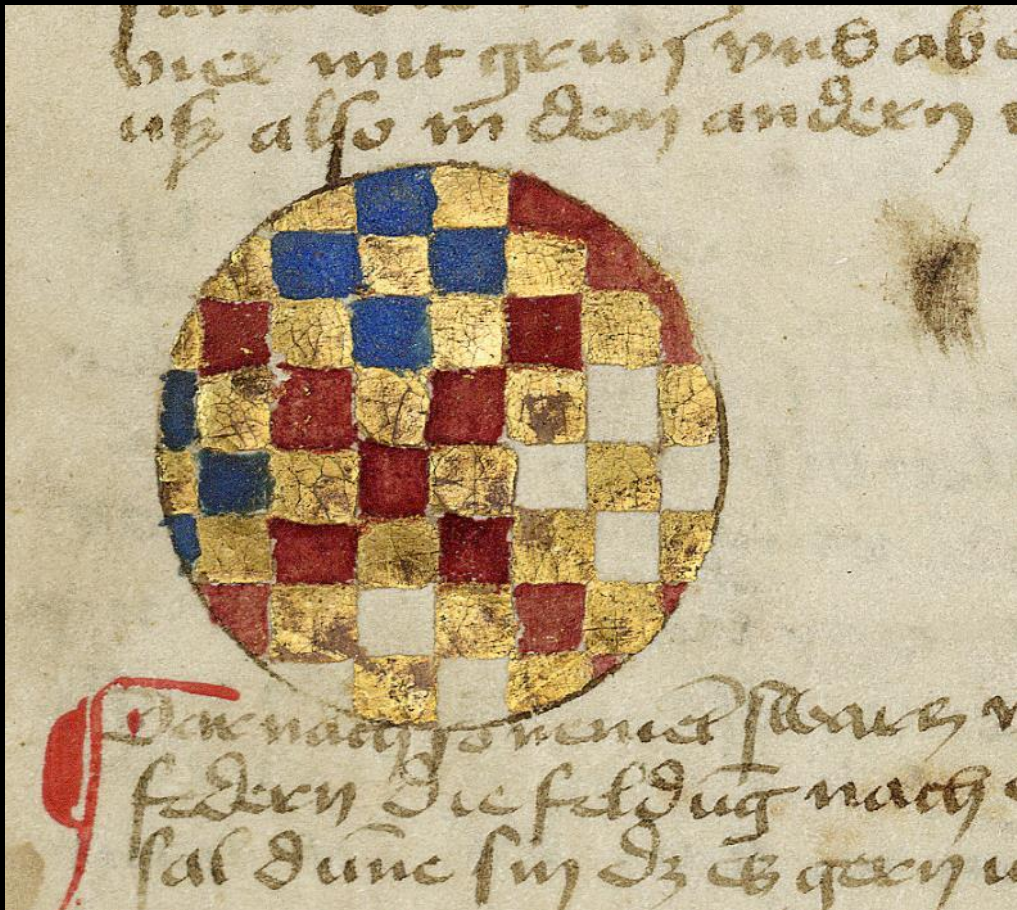 vier mit gruͤn vnd abe
uß also in dem andern
Dar nach so nement swarcz
federn die feldūg nach
sal dūne sin dz es gern